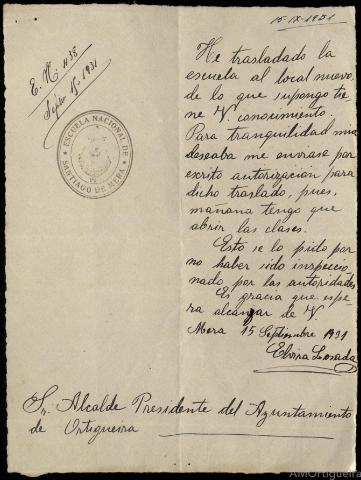 15-IX-1931
E. N. 1138
Sepbre 15-1931
ESCUELA NACIONAL DE
SANTIAGO DE MERA
He trasladado la
escuela al local nuevo,
de lo que supongo tie
ne V. conocimiento.
Para tranquilidad mia
deseaba me enviase por
escrito autorización para
dicho traslado, pues,
mañana tengo que
abrir las clases.
Esto se lo pido por
no haber sido inspeccio,
nado por las autoridades
Es gracia que espe
ra alcanzar de V.
Mera 15 Septiembre 1931
Elvira Losada
Sr. Alcalde Presidente del Ayuntamiento
de Ortigueira
AMOrtigueira